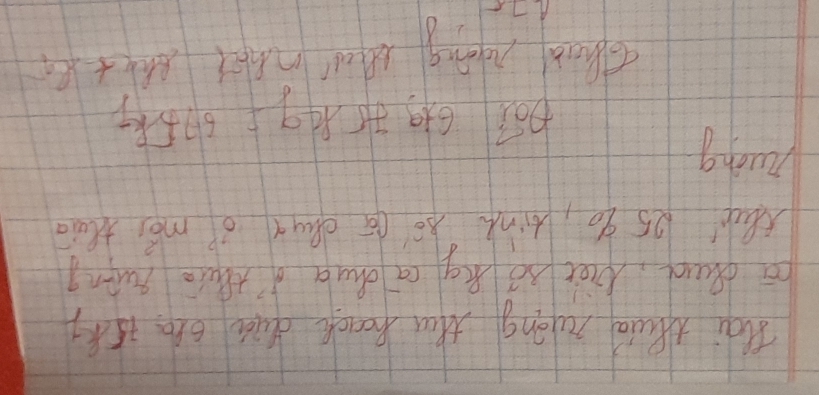 Hai thửa ruộng thu hoạch được 6tạ 75kg
cà chua, biết số kg cà chua ở thửa ruộng
thứ 25 %, tính số cà chua ở mỗi thửa
ruộng
Đổi 6tạ 75 kg = 675kg
Thửa ruộng thứ nhất thu